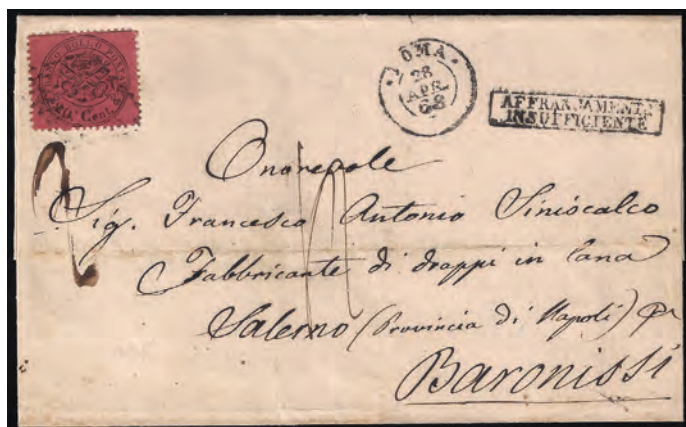 BOLLO POST
20. Cent.
ROMA
28
APR.
68
AFFRANCAMENTO
INSUFFICIENTE
Onorevole
Sig. Francesco Antonio Siniscalco
Fabbricante di drappi in lana
Salerno (Provincia di Napoli) per
Baronissi